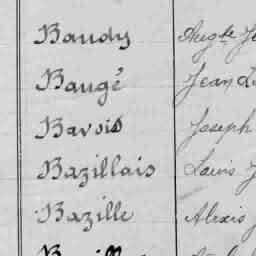 Baudy Aug^te
Baugé Jean
Bavois Joseph
Bazillais Louis
Bazille Alexis